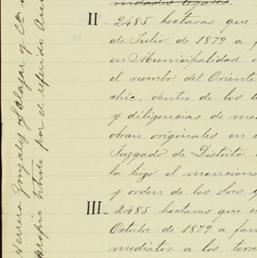 II - 2485 hectaras que
de Julio de 1879 a f
en Municipalidad
el rumbo del Oriente
chic, dentro de los
y diligencias de me
obran originales en
Juzgado de Distrito
la hizo el mencion
y orden de los Sres y
III - 2485 hectaras que e
Octubre de 1879 a fa
mediatos a los terre
Herrera Gonzales Salazar y Cia
por el referido